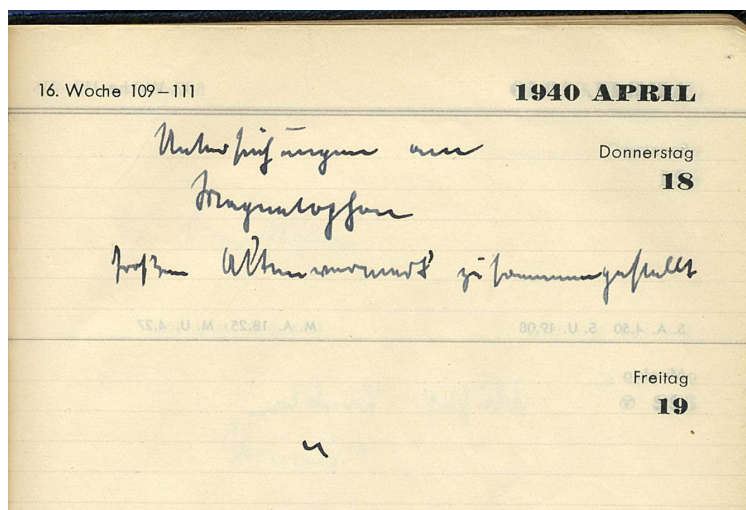 16. Woche 109–111
1940 APRIL
Donnerstag
18
Untersuchungen am
Magnetophon
großen Aktenvermerk zusammengestellt
Freitag
19
"